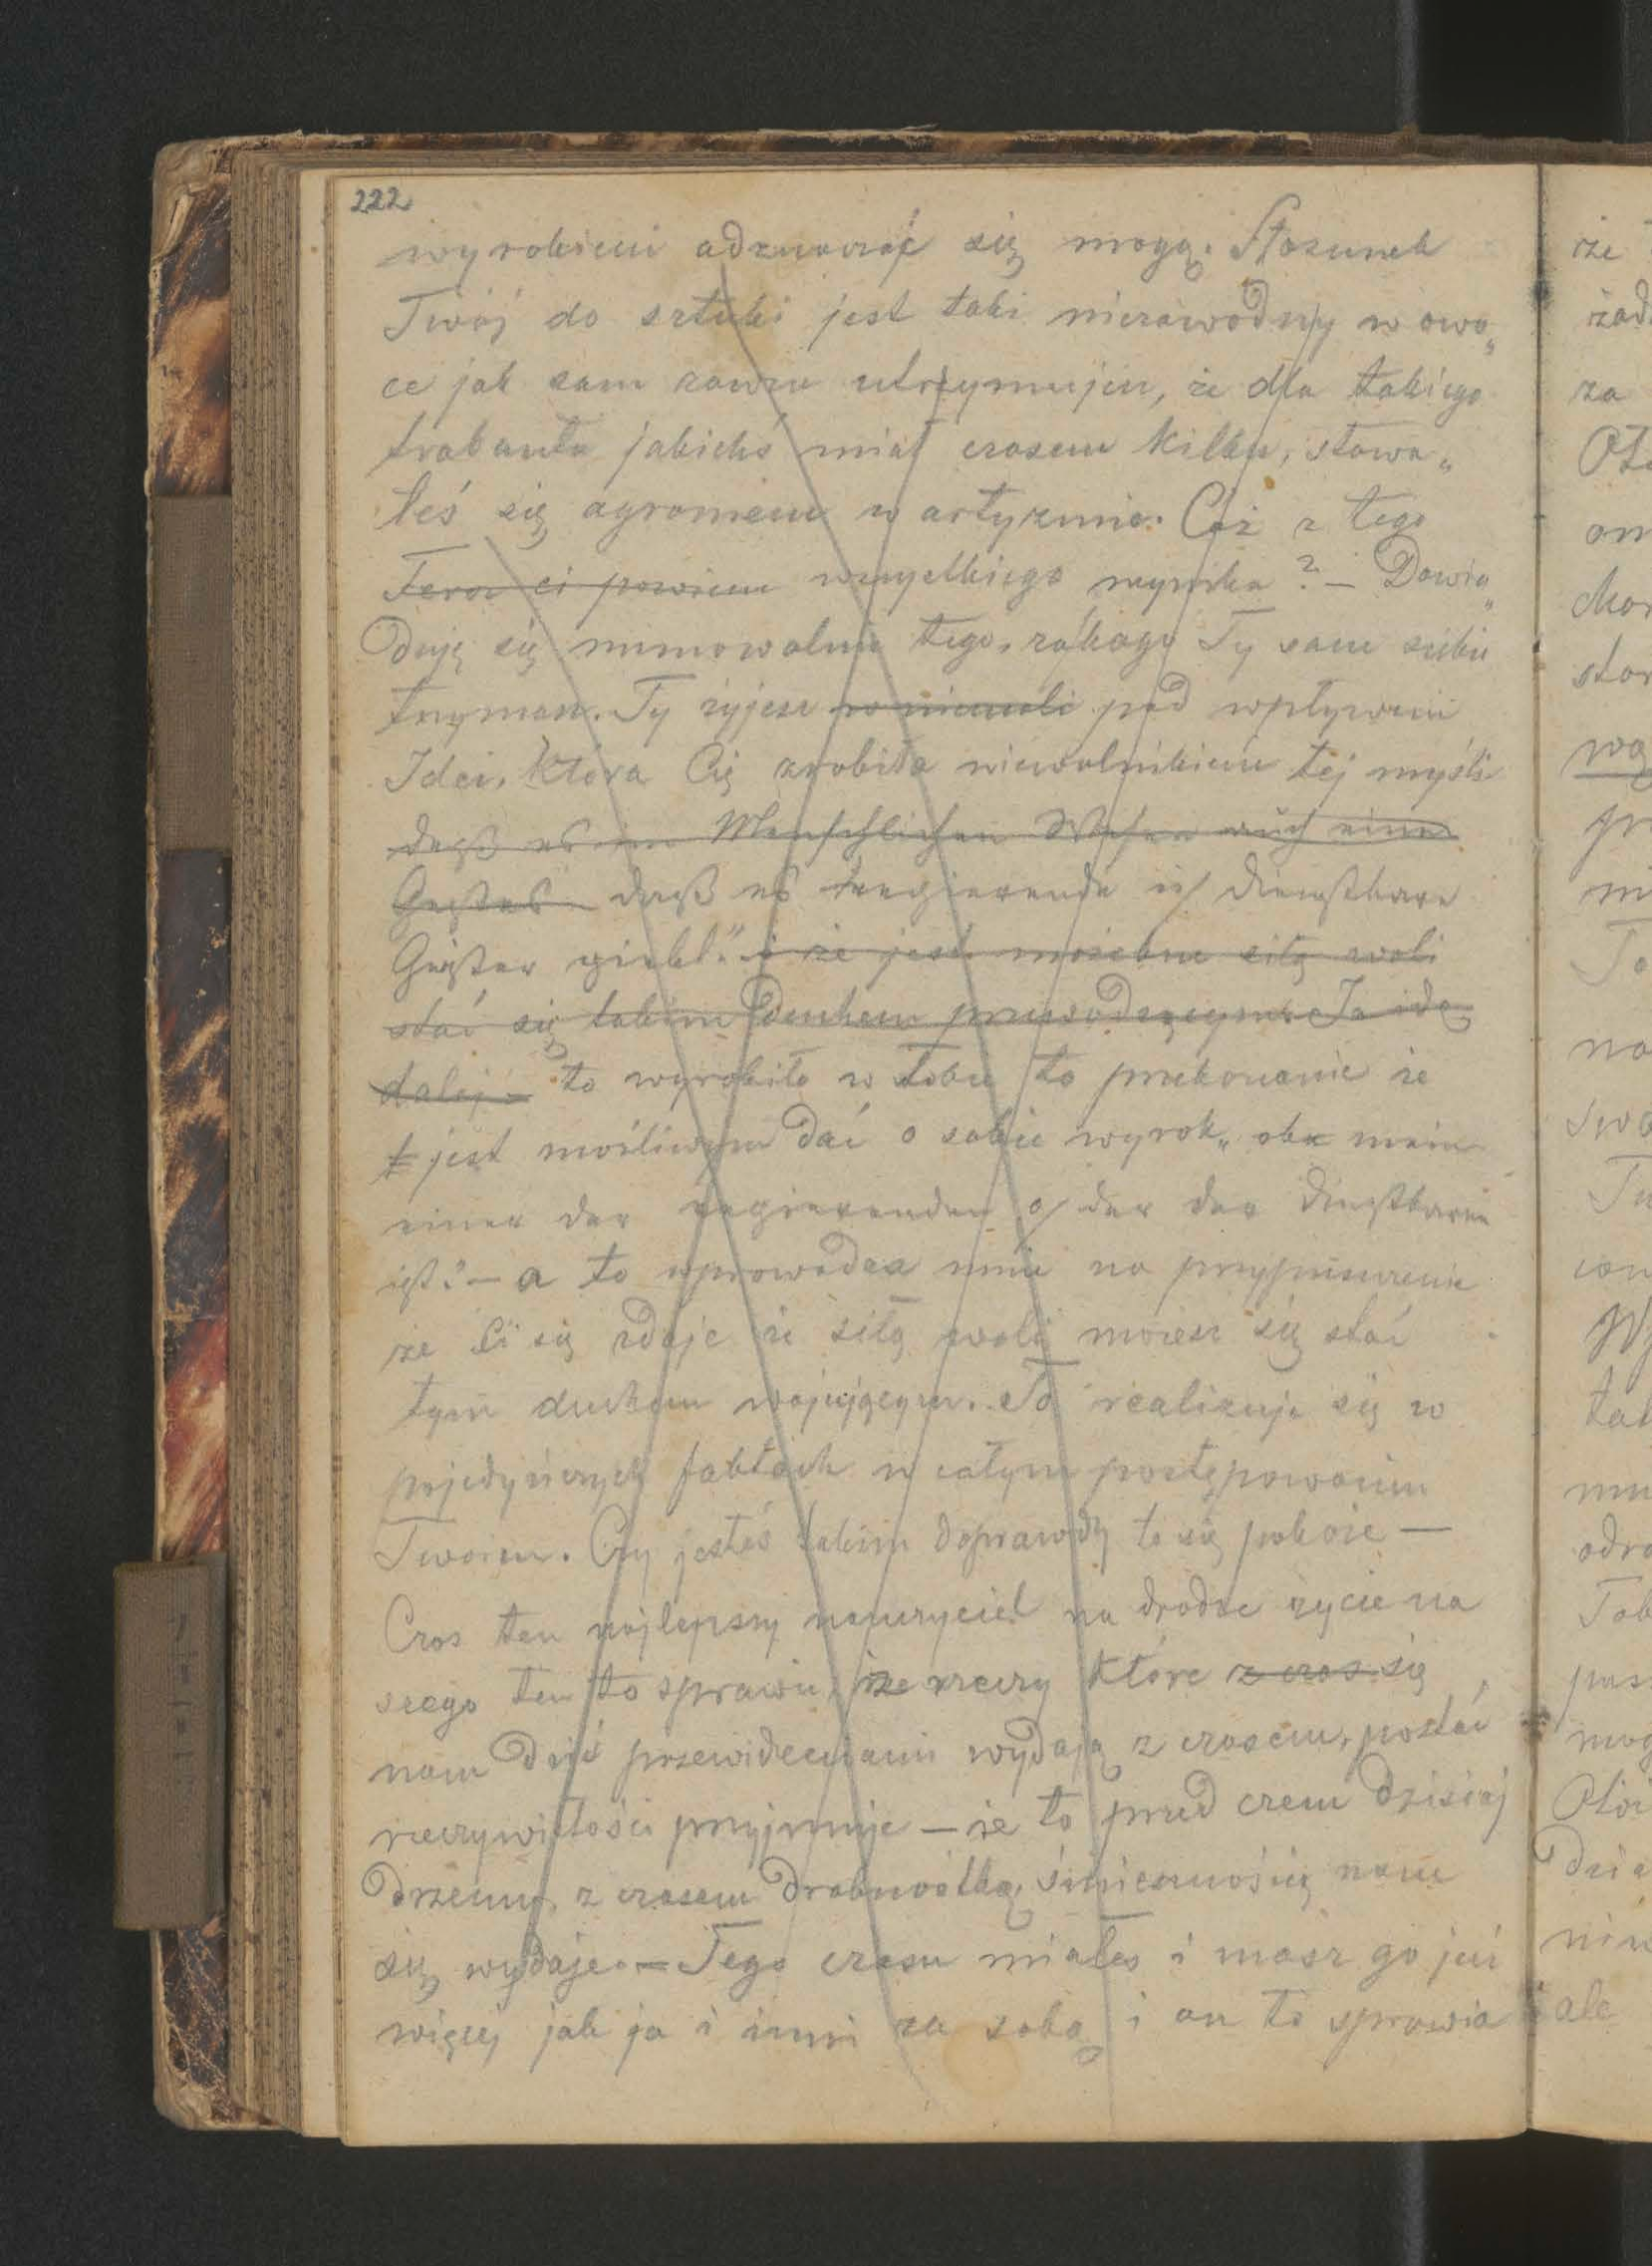 222
wyrobieni odznaczać się mogą. Stosunek
Twój do sztuki jest taki niezawodny w owo„
ce jak sam zawsze utrzymujesz, że dla takiego
trabanta jakichś miał czasem kilku, stawa„
łeś się ogromem w artyzmie. Cóż z tego
Teraz ci powiem wszystkiego wynika? — Dowia„
duję się mimowolnie tego, za kogo Ty sam siebie
trzymasz. Ty żyjesz w niewoli pod wpływem
Idei, która Cię zrobiła niewolnikiem tej myśli
daß es im Menschlichen Wesen auch einen
Geistes daß es regierende u/ dienstbare
Geister giebt" i że jest możebne siłą woli
stać się takim duchem przewodzącym. Ja idę
dalej – to wyrobiło w Tobie to przekonanie że
jest możliwym dać o sobie wyrok „ob
einer der regierenden o/ der der dienstbaren
ist? — a to wprowadza mnie na przypuszczenie
że Ci się zdaje że siłą woli możesz się stać
tym duchem wojującym. To realizuje się w
pojedyńczych faktach w całym postępowaniu
Twoim. Czy jesteś takim doprawdy to się pokaże —
Czas ten najlepszy nauczyciel na drodze życia na
szego ten to sprawia, że rzeczy które z czas się
nam dziś przewidzeniami wydają z czasem, postać
rzeczywistości przyjmuje — że to przed czem dzisiaj
drżemy, z czasem drobnostką, śmiesznością nam
się wydaje. — Tego czasu miałeś i masz go już
więcej jak ja i inni za sobą i on to sprawia